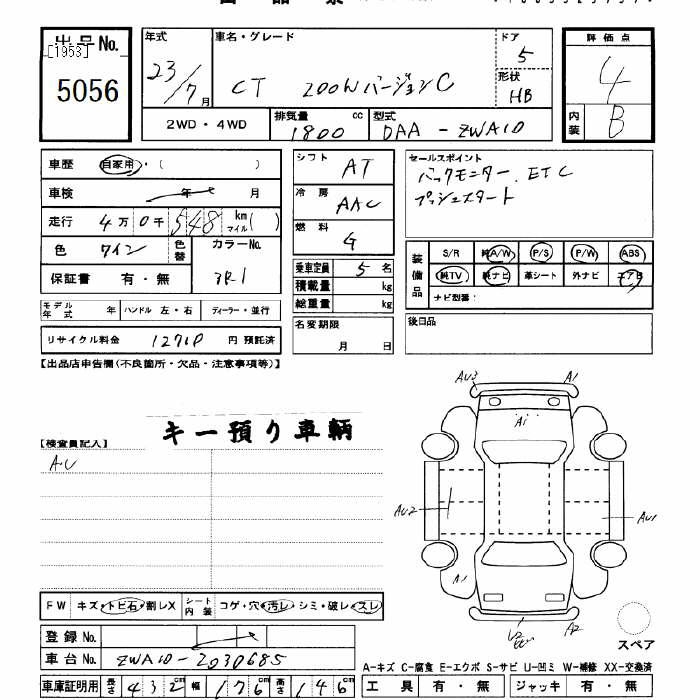 [1953]
出品No.
5056
年式
23/7月
車名・グレード
CT 200h バージョンC
ドア
5
形状
HB
評価点
4
内装
B
2WD・4WD
排気量 cc
1800
型式
DAA-ZWA10
車歴 自家用・( )
車検 年 月
走行 4万0千548 km マイル( )
色 ワイン 色替 カラーNo. 3R1
保証書 有・無
モデル年式 年 ハンドル 左・右 ディーラー・並行
リサイクル料金 12710 円 預託済
シフト AT
冷房 AAC
燃料 G
乗車定員 5 名
積載量 kg
総重量 kg
名変期限
月 日
セールスポイント
バックモニター. ETC
プッシュスタート
装備品
S/R 純A/W P/S P/W ABS
純TV 純ナビ 革シート 外ナビ エアB
ナビ型番:
後日品
【出品店申告欄(不良箇所・欠品・注意事項等)】
キー預り車輌
【検査員記入】
A.U
AU3 A1
A1
AU2
AU1
A1
A2
スペア
FW キズ・トビ石・割レX シート内装 コゲ・穴・汚レ・シミ・破レ・スレ
登録No.
車台No. ZWA10-2030685
車庫証明用 長さ 432cm 幅 176cm 高さ 146cm
A-キズ C-腐食 E-エクボ S-サビ U-凹ミ W-補修 XX-交換済
工具 有・無 ジャッキ 有・無